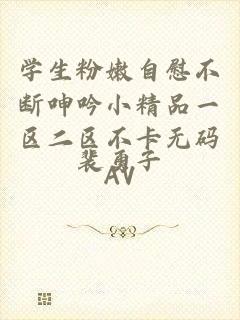 学生粉嫩自慰不
断呻吟小精品一
区二区不卡无码
裴勇子
AV